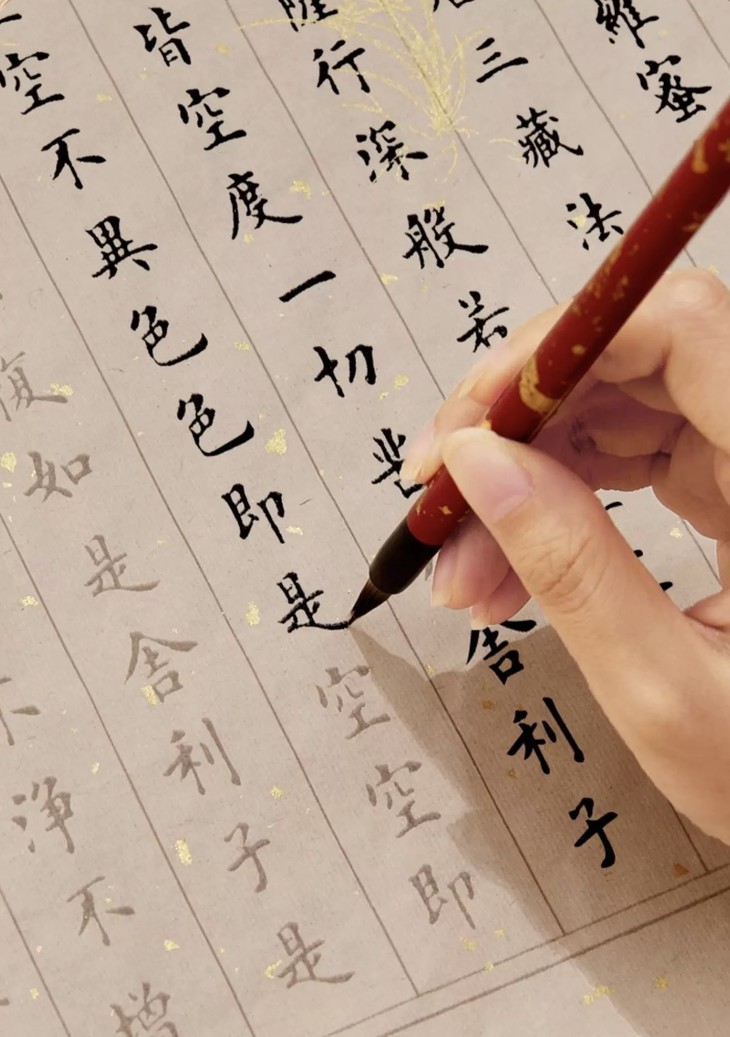 羅蜜
三藏法
行深般若
皆空度一切苦舍利子
空不異色色即是空空即
復如是舍利子是
不淨不增